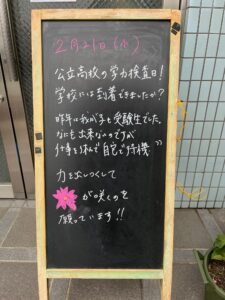 2月21日(水)
公立高校の学力検査日!
学校には到着できましたか?
昨年は我が子も受験生でした。
なにも出来ないのですが
仕事を休んで自宅で待機"
力を出しつくして
が咲くのを
願っています!!